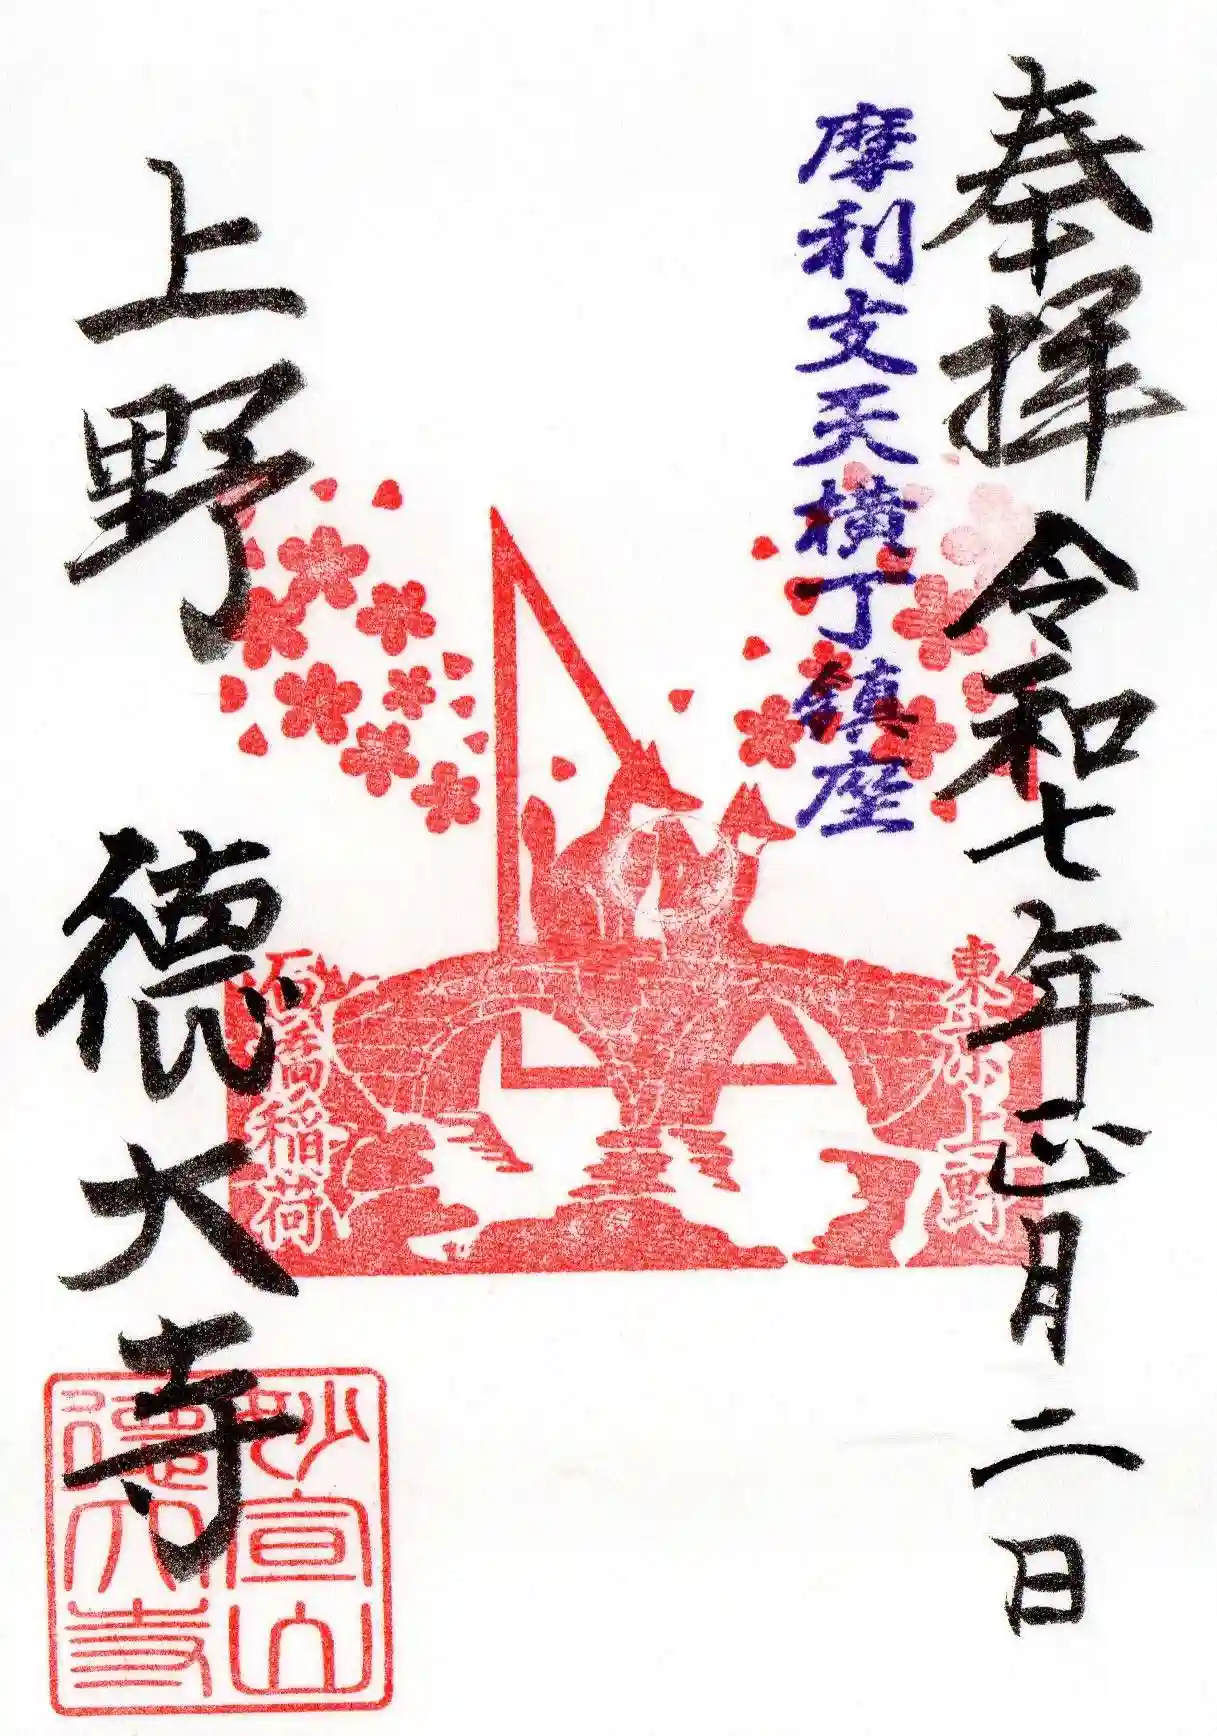 奉拝 令和七年正月二日
摩利支天横丁鎮座
東京上野
石橋稲荷
上野 徳大寺
妙宣山
徳大寺